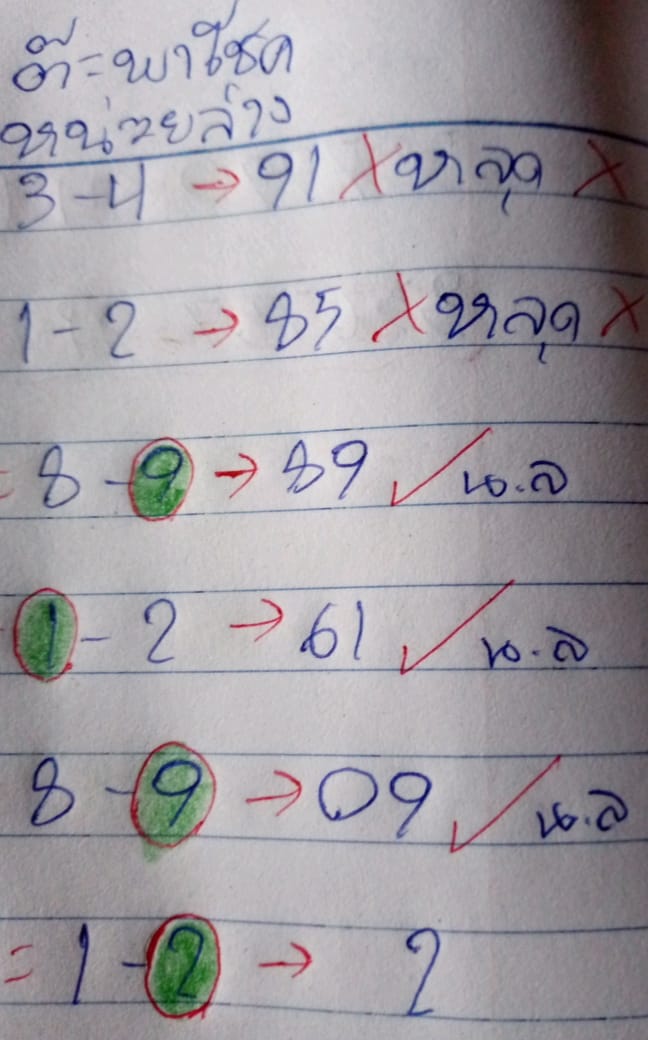 ต๊ะ=พาโชค
หน่วยล่าง
3-4 → 91 ✗ หลุด ✗
1-2 → 85 ✗ หลุด ✗
= 8-9 → 89 ✓ น.ล
1-2 → 61 ✓ น.ล
8-9 → 09 ✓ น.ล
= 1-2 → 2